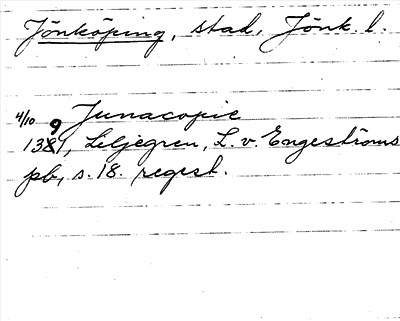 Jönköping, stad, Jönk. l.
4/10 9 Junacopie
1381, Liljegren, L. v. Engeströms
pb, s. 18. regest.